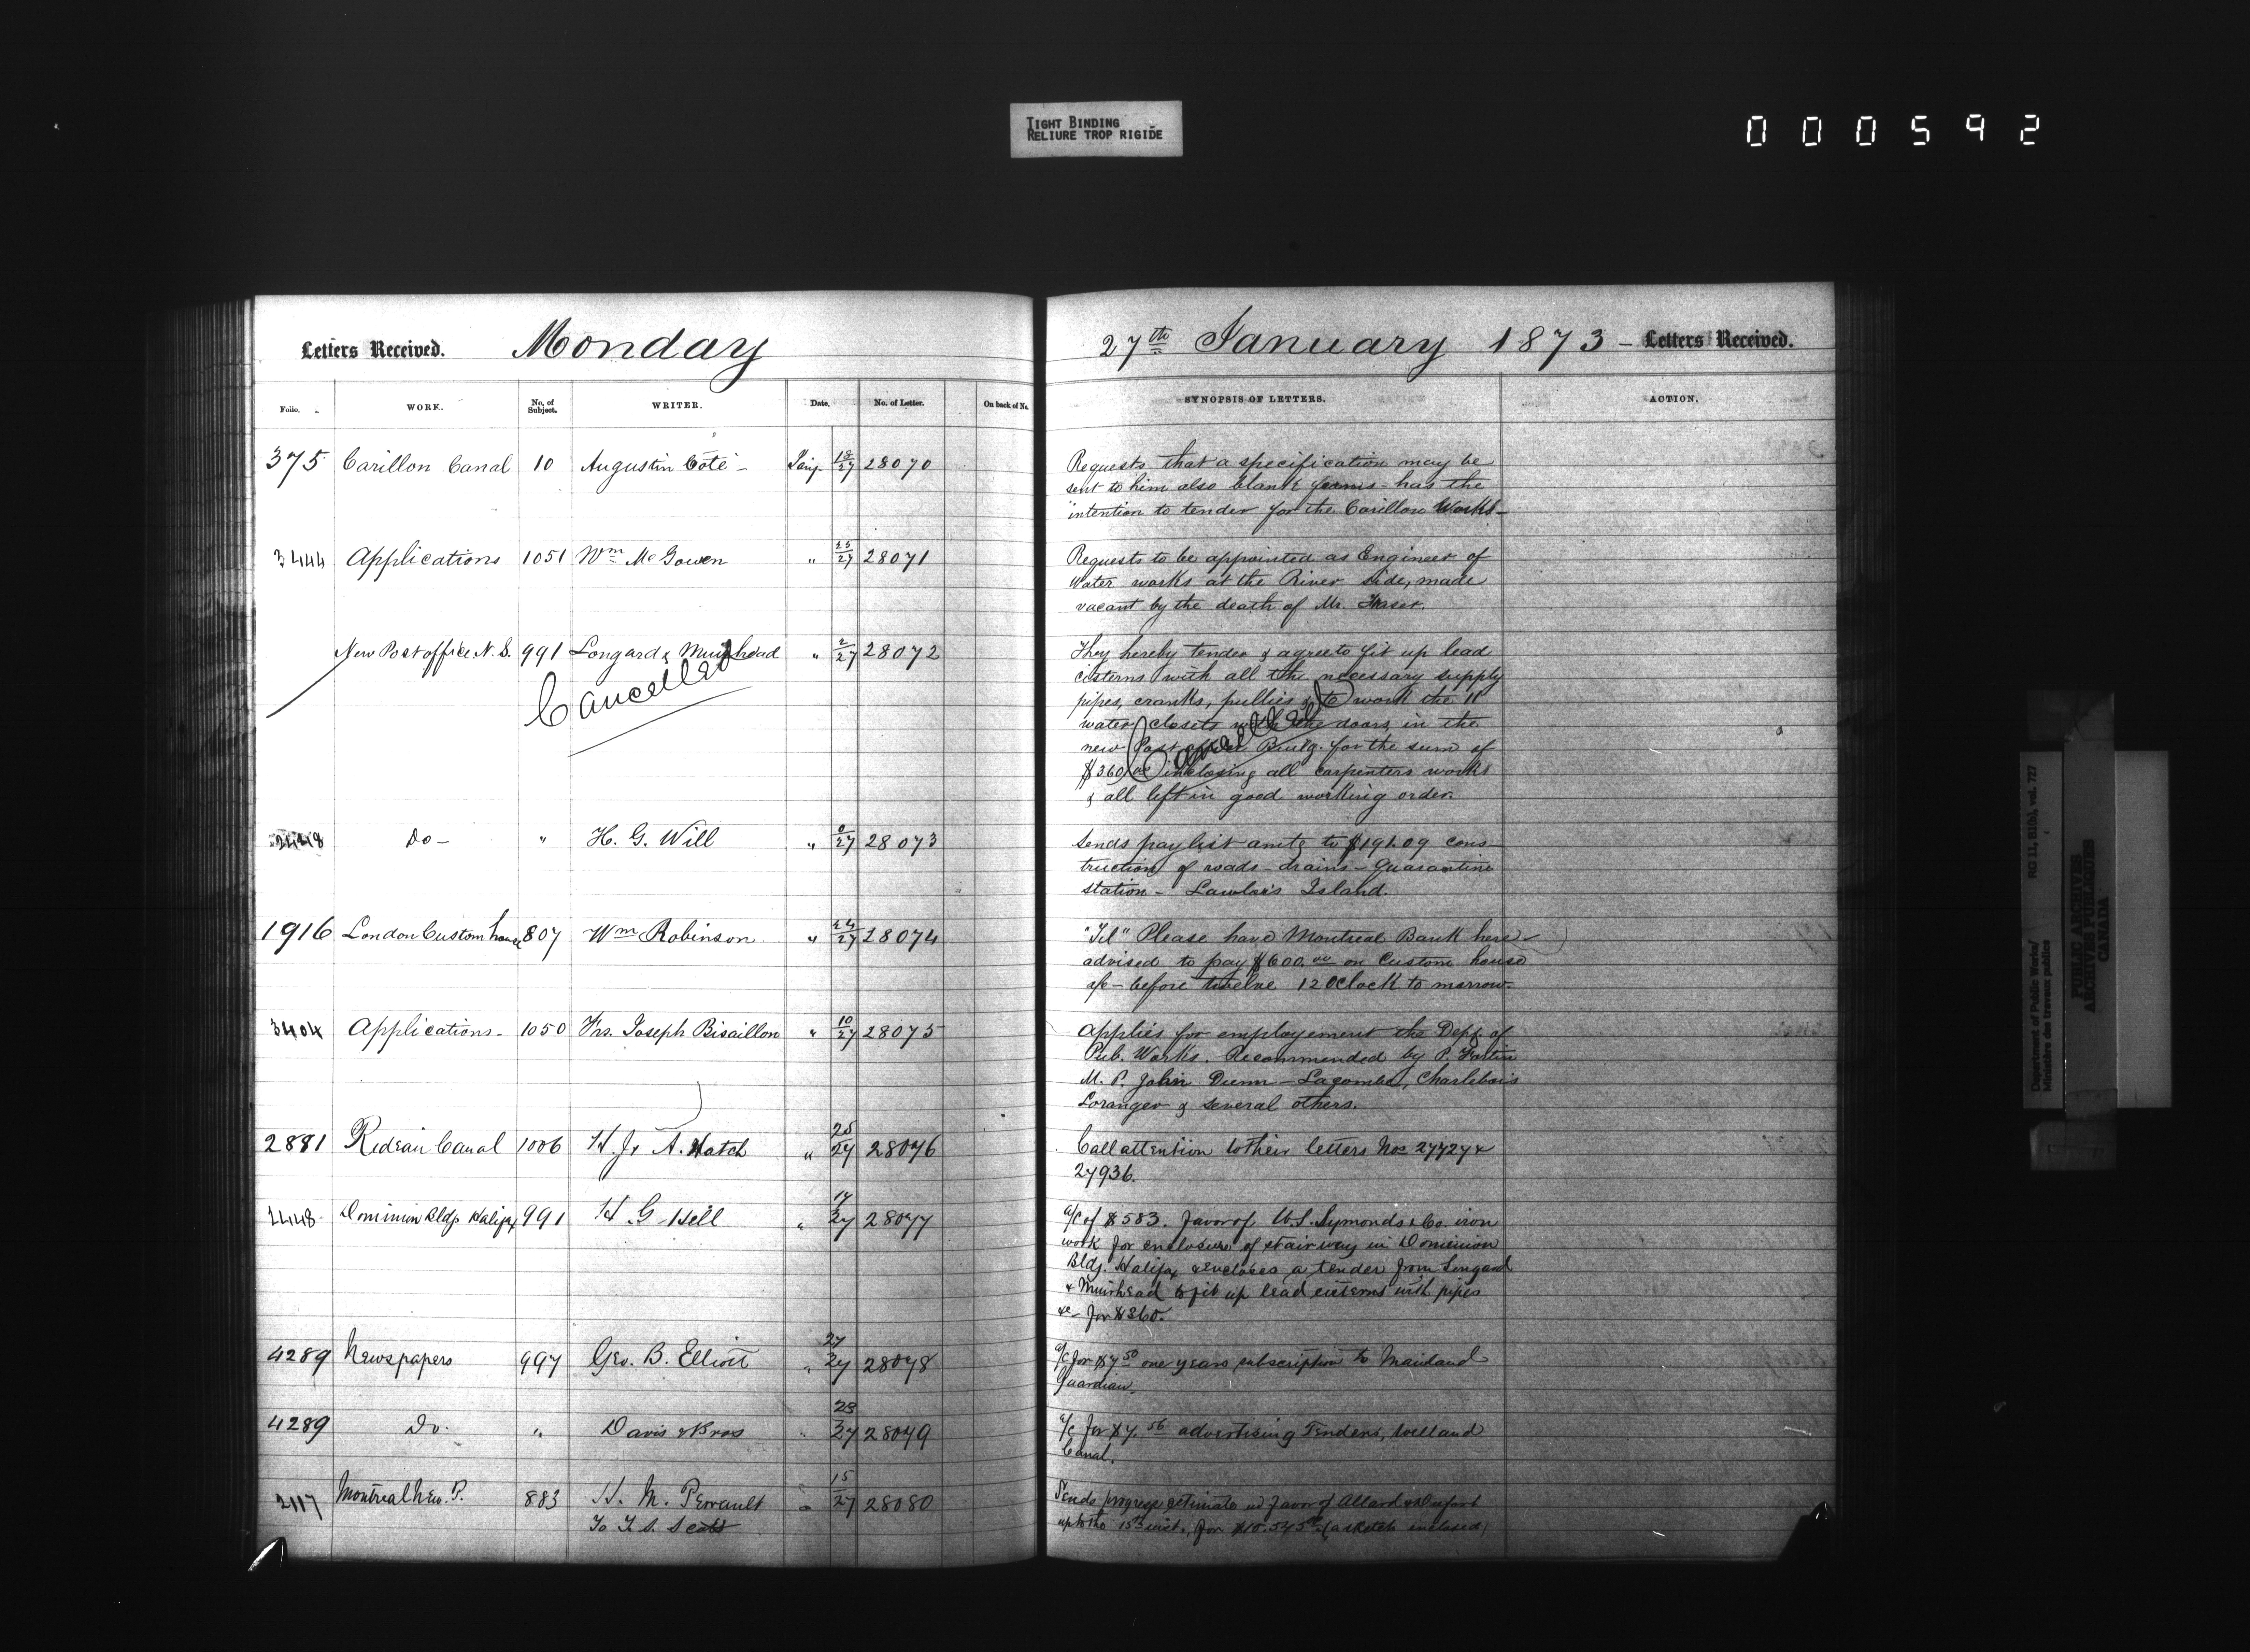 TIGHT BINDING
RELIURE TROP RIGIDE
000592
Letters Received. Monday
Folio. WORK. No. of Subject. WRITER. Date. No. of Letter. On back of No.
375 Carillon Canal 10 Augustin Coté - Jany. 18/27 28070
3444 Applications 1051 Wm McGowen " 25/27 28071
New Post office N.S. 991 Longard & Muirhead " 2/27 28072
Cancelled
2448 Do - " H. G. Will " 0/27 28073
1916 London Custom house 807 Wm Robinson " 24/27 28074
3404 Applications - 1050 Frs. Joseph Bisaillon " 10/27 28075
2881 Rideau Canal 1006 H. J. A. Hatch " 25/27 28076
2448 Dominion Bldgs Halifax 991 H G Hill " 17/27 28077
4289 Newspapers 997 Geo. B. Elliott " 27/27 28078
4289 Do. " Davis & Bros " 23/27 28079
2117 Montreal New. P. 883 H. M. Perrault " 15/27 28080
To T. S. Scott
27th January 1873 - Letters Received.
SYNOPSIS OF LETTERS. ACTION.
Requests that a specification may be
sent to him also blank forms - has the
intention to tender for the Carillon Works -
Requests to be appointed as Engineer of
Water works at the River side, made
vacant by the death of Mr. Fraser.
They hereby tender & agree to fit up lead
cisterns with all the necessary supply
pipes, cranks, pullies & to work the 11
water closets with the doors, in the
new Post office Buildg. for the sum of
$360.00 inclosing all carpenters works
& all left in good working order.
Cancelled
Sends pay list amtg to $191.09 cons
truction of roads - drains - Quarantine
station - Lawlor's Island.
"Tel" Please have Montreal Bank here
advised to pay $600.00 on Custom house
a/c - before twelve 12 OClock to morrow -
Applies for employement the Dept. of
Pub. Works. Recommended by P. Fortin
M.P. John Dunn - Lacombe, Charlebois
Loranger & several others.
Call attention to their letters Nos 27727 &
27936.
a/c of $583. favor of W. S. Symonds & Co. iron
work for enclosure of stairway in Dominion
Bldg. Halifax & encloses a tender from Longard
& Muirhead to fit up lead cisterns with pipes
&c - for $360.
a/c for $7.50 one years subscription to Mainland
Guardian.
a/c for $7.56 advertising Tenders, Welland
Canal.
Sends progress estimate in favor of Allard &
up to the 15th inst., for (a sketch inclosed)
Department of Public Works/
Ministère des travaux publics
RG 11, B1(b), vol. 727
PUBLIC ARCHIVES
ARCHIVES PUBLIQUES
CANADA